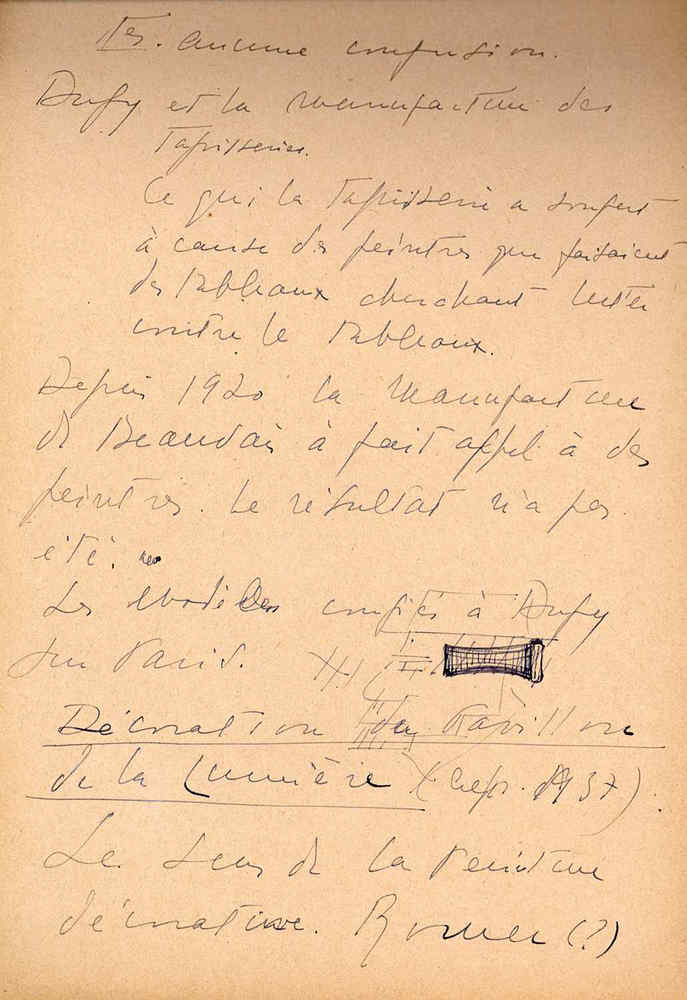 aucune confusion.
Dufy et la manufacture des
Tapisseries.
Ce qui la Tapisserie a souffert
à cause des peintres qui faisaient
des Tableaux cherchant lutter
contre le Tableaux.
Depuis 1920 la Manufacture
de Beauvais à fait appel à des
peintres. Le résultat n'a pas
été.
Les modèles confiés à Dufy
sur Paris.
Décoration du Pavillon
de la Lumière (exp. 1937).
Le sens de la Peinture
décorative. (?)